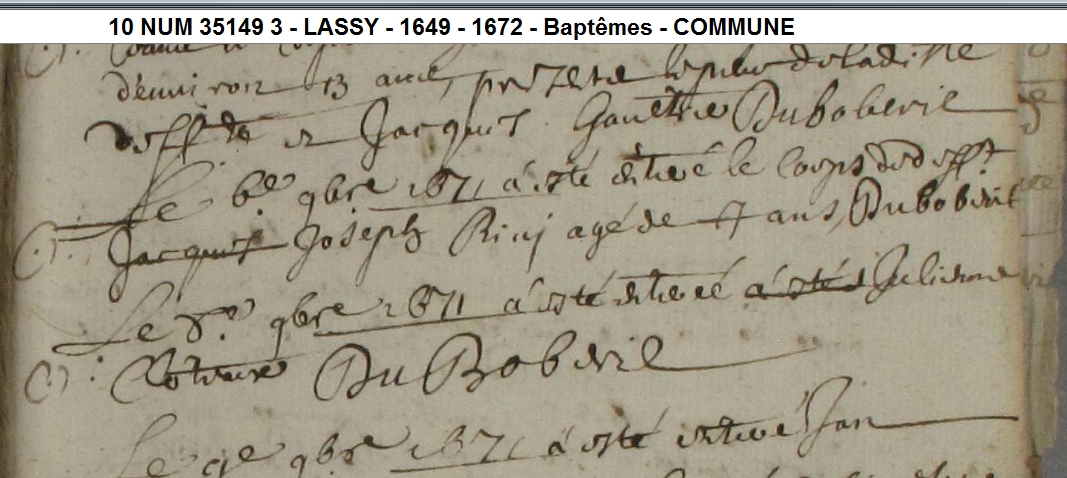 10 NUM 35149 3 - LASSY - 1649 - 1672 - Baptêmes - COMMUNE
d'environ 13 ans, présente
deffte et Jacques Gaultier Duboberil
Le 6e 9bre 1671 a esté enterré le corps de defft
Jacques Joseph agé de 7 ans, Duboberil
Le 8e 9bre 1671 a esté enterré a esté Julienne
DuBoberil
Le 9e 9bre 1671 a esté enterré Jan